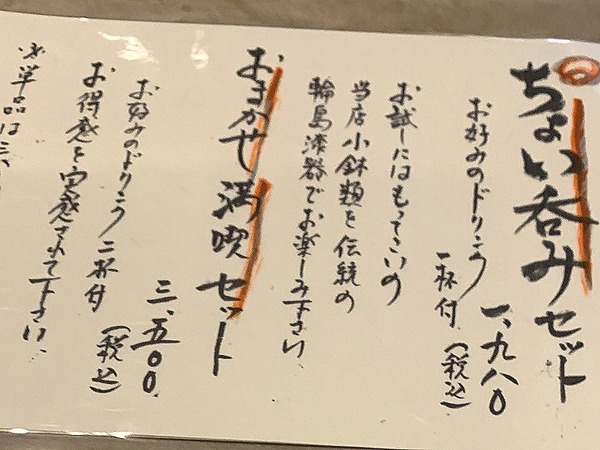 ちょい呑みセット
お好みのドリンク一杯付
一、九八〇
（税込）
お試しにはもってこいの
当店小鉢類を伝統の
輪島漆器でお楽しみ下さい
おまかせ満喫セット
三、五〇〇
（税込）
お好みのドリンク二杯付
お得感を実感されて下さい
単品は